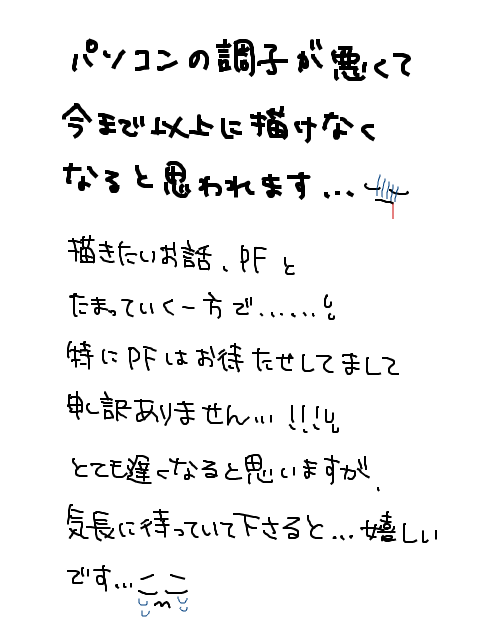 パソコンの調子が悪くて
今まで以上に描けなく
なると思われます...
描きたいお話、PFと
たまっていく一方で......
特にPFはお待たせしてまして
申し訳ありません...!!!
とても遅くなると思いますが、
気長に待っていて下さると...嬉しい
です...